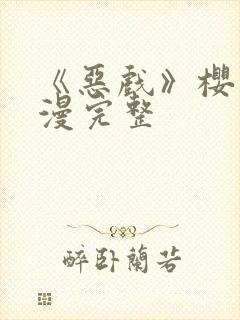 《惡戲》櫻
漫完整
醉卧蘭若